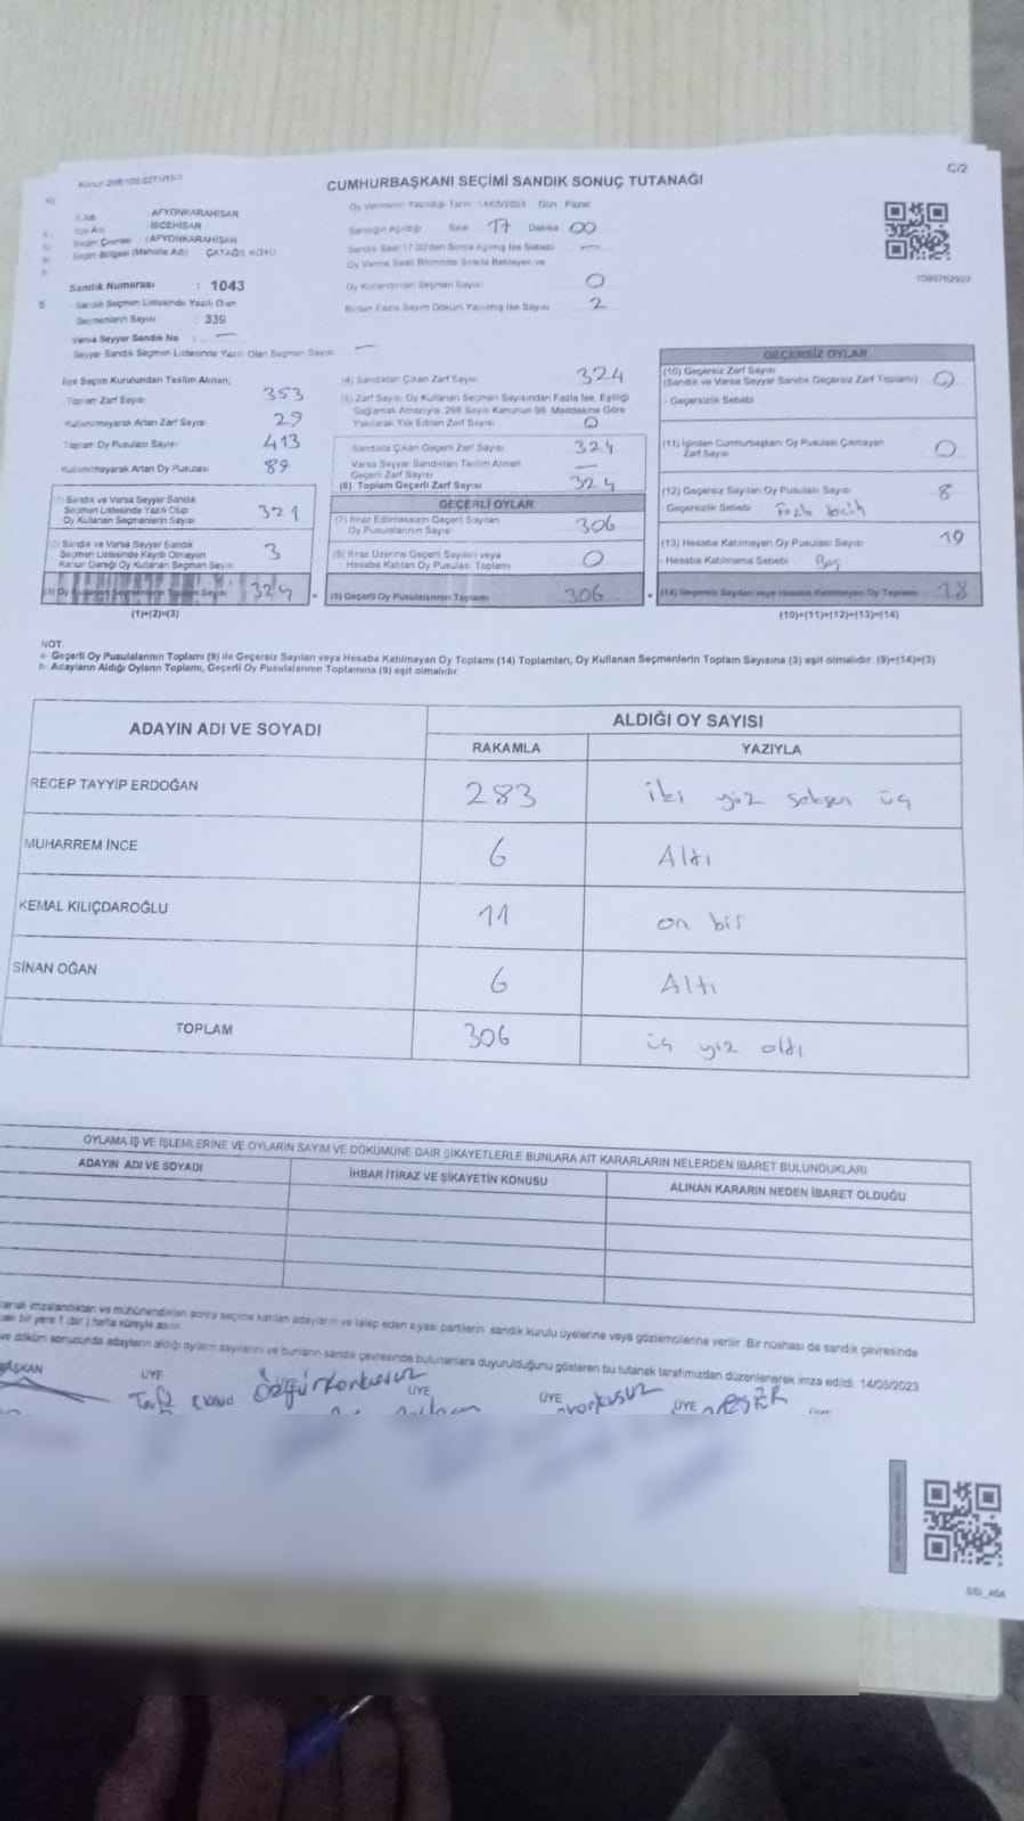 C/2
CUMHURBAŞKANI SEÇİMİ SANDIK SONUÇ TUTANAĞI
: AFYONKARAHİSAR
: İSCEHİSAR
: AFYONKARAHİSAR
Sandık Numarası : 1043
Sandık Seçmen Listesinde Yazılı Olan
Seçmenlerin Sayısı : 339
Varsa Seyyar Sandık No : —
Seyyar Sandık Seçmen Listesinde Yazılı Olan Seçmen Sayısı —
Oy Vermenin Yapıldığı Tarih : 14/05/2023 Gün: Pazar
Sandığın Açıldığı Saat 17 Dakika 00
Oy Verme Saati Bitiminde Sırada Bekleyen ve
Oy Kullandırılan Seçmen Sayısı 0
Birden Fazla Sayım Döküm Yapılmış İse Sayısı 2
İlçe Seçim Kurulundan Teslim Alınan;
Toplam Zarf Sayısı 353
Kullanılmayarak Artan Zarf Sayısı 29
Toplam Oy Pusulası Sayısı 413
Kullanılmayarak Artan Oy Pusulası 89
Sandık ve Varsa Seyyar Sandık
Seçmen Listesinde Yazılı Olup
Oy Kullanan Seçmenlerin Sayısı 321
Sandık ve Varsa Seyyar Sandık
Seçmen Listesinde Kaydı Olmayan
Kanun Gereği Oy Kullanan Seçmen Sayısı 3
324
(1)+(2)=(3)
(4) Sandıktan Çıkan Zarf Sayısı 324
(5) Zarf Sayısı, Oy Kullanan Seçmen Sayısından Fazla İse, Eşitliği
Sağlamak Amacıyla, 298 Sayılı Kanunun 98. Maddesine Göre
Yakılarak Yok Edilen Zarf Sayısı 0
Sandıkta Çıkan Geçerli Zarf Sayısı 324
Varsa Seyyar Sandıktan Teslim Alınan
Geçerli Zarf Sayısı —
(6) Toplam Geçerli Zarf Sayısı 324
GEÇERLİ OYLAR
(7) İtiraz Edilmeksizin Geçerli Sayılan
Oy Pusulalarının Sayısı 306
(8) İtiraz Üzerine Geçerli Sayılan veya
Hesaba Katılan Oy Pusulası Toplamı 0
(9) Geçerli Oy Pusulalarının Toplamı 306
GEÇERSİZ OYLAR
(10) Geçersiz Zarf Sayısı
(Sandık ve Varsa Seyyar Sandık Geçersiz Zarf Toplamı) 0
- Geçersizlik Sebebi
(11) İçinden Cumhurbaşkanı Oy Pusulası Çıkmayan
Zarf Sayısı 0
(12) Geçersiz Sayılan Oy Pusulası Sayısı 8
Geçersizlik Sebebi
(13) Hesaba Katılmayan Oy Pusulası Sayısı 10
- Hesaba Katılmama Sebebi Boş
18
(10)+(11)+(12)+(13)=(14)
NOT:
a- Geçerli Oy Pusulalarının Toplamı (9) ile Geçersiz Sayılan veya Hesaba Katılmayan Oy Toplamı (14) Toplamları, Oy Kullanan Seçmenlerin Toplam Sayısına (3) eşit olmalıdır. (9)+(14)=(3)
b- Adayların Aldığı Oyların Toplamı, Geçerli Oy Pusulalarının Toplamına (9) eşit olmalıdır.
ADAYIN ADI VE SOYADI
ALDIĞI OY SAYISI
RAKAMLA YAZIYLA
RECEP TAYYİP ERDOĞAN 283 iki yüz seksen üç
MUHARREM İNCE 6 Altı
KEMAL KILIÇDAROĞLU 11 on bir
SİNAN OĞAN 6 Altı
TOPLAM 306 üç yüz altı
OYLAMA İŞ VE İŞLEMLERİNE VE OYLARIN SAYIM VE DÖKÜMÜNE DAİR ŞİKAYETLERLE BUNLARA AİT KARARLARIN NELERDEN İBARET BULUNDUKLARI
ADAYIN ADI VE SOYADI İHBAR İTİRAZ VE ŞİKAYETİN KONUSU ALINAN KARARIN NEDEN İBARET OLDUĞU
imzalandıktan ve mühürlendikten sonra seçime katılan adayların ve talep eden siyasi partilerin sandık kurulu üyelerine veya gözlemcilerine verilir. Bir nüshası da sandık çevresinde
ve döküm sonucunda adayların aldığı oyların sayılarını ve bunların sandık çevresinde bulunanlara duyurulduğunu gösteren bu tutanak tarafımızdan düzenlenerek imza edildi. 14/05/2023
ÜYE ÜYE ÜYE ÜYE